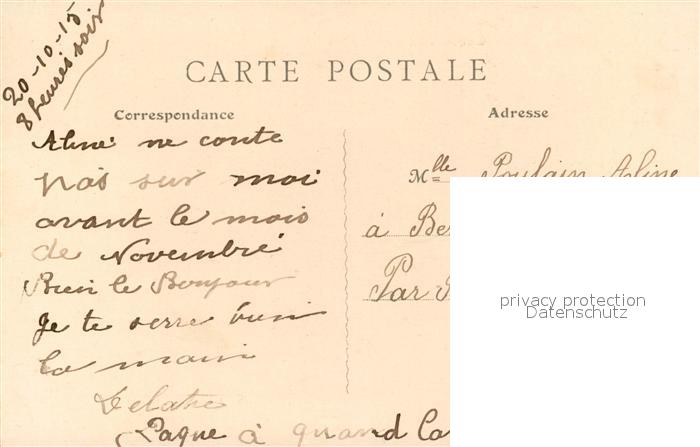 20-10-15
8 heures soir
CARTE POSTALE
Correspondance
Aline ne conte
pas sur moi
avant le mois
de Novembre
Bien le Bonjour
Je te serre bien
la main
Delatre
Paque à quand la
Adresse
Mlle Poulain Aline
à Be
Par
privacy protection
Datenschutz